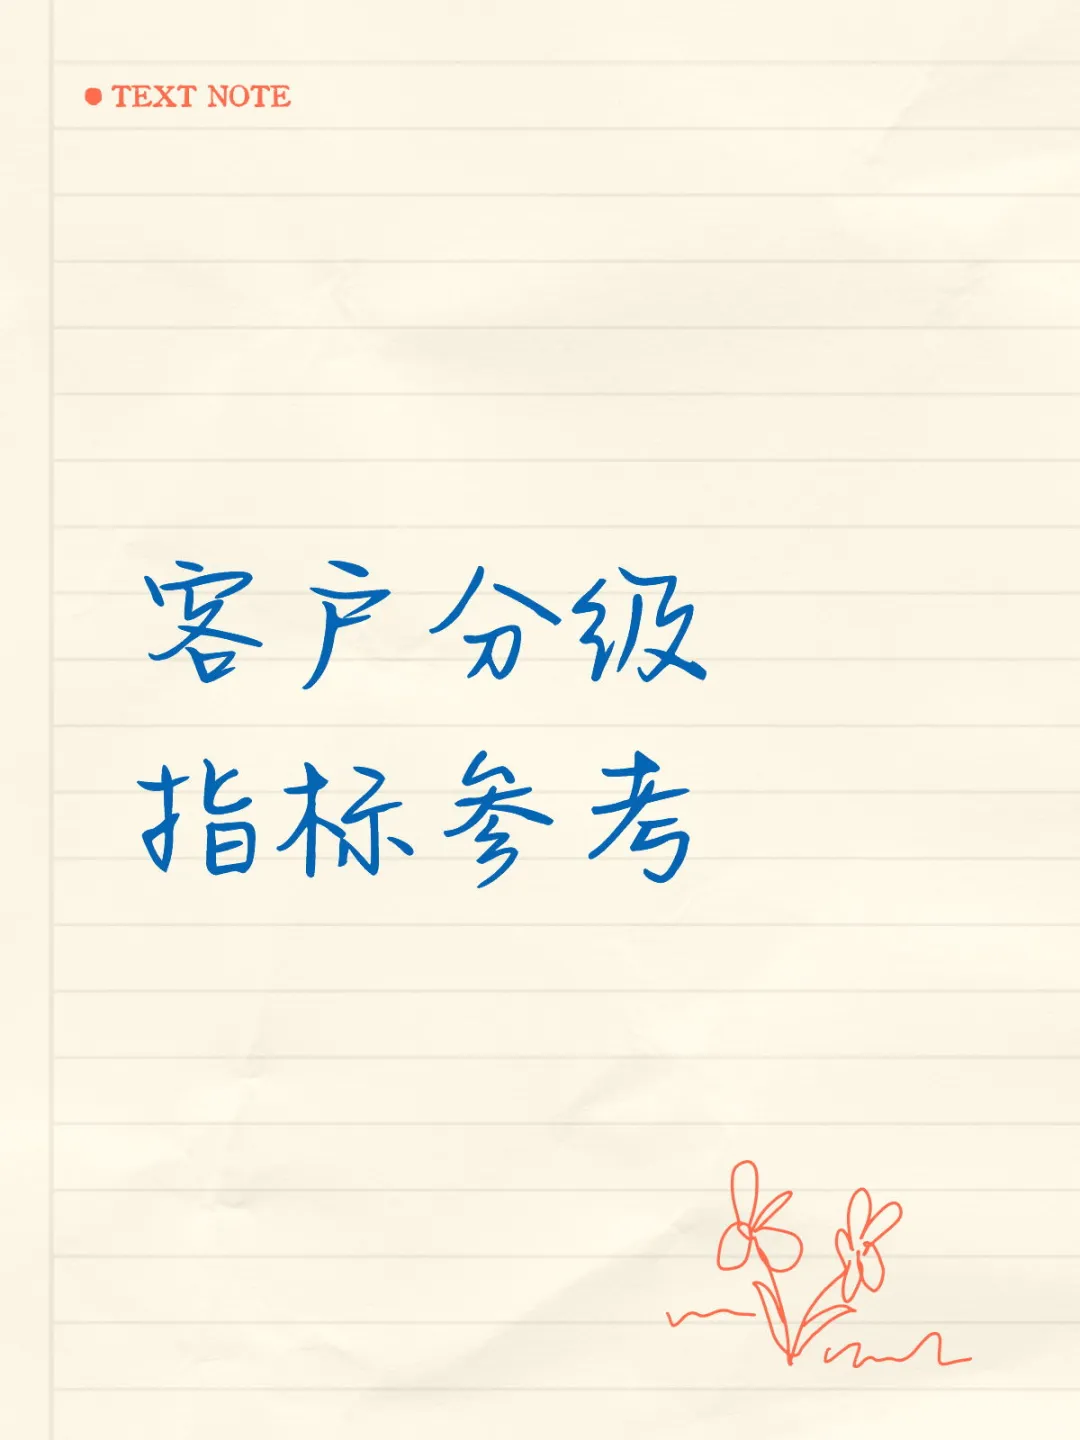 TEXT NOTE
客户分级
指标参考